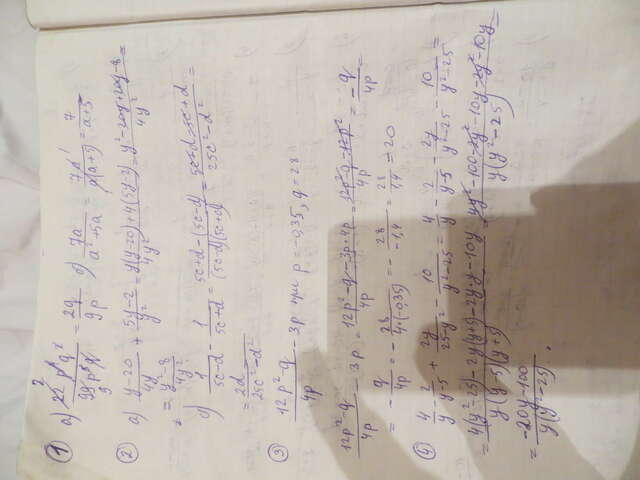 ① а) 22 p⁴ q² / 99 p⁵ q = 2q / 9p б) 7a / a²+5a = 7a / a(a+5) = 7 / a+5
② а) y-20 / 4y + 5y-2 / y² = y(y-20)+4(5y-2) / 4y² = y²-20y+20y-8 / 4y² =
= y²-8 / 4y²
б) 1 / 5c-d - 1 / 5c+d = 5c+d-(5c-d) / (5c-d)(5c+d) = 5c+d-5c+d / 25c²-d² =
= 2d / 25c²-d²
③
12p²-q / 4p - 3p при p = -0,35, q = 28
12p²-q / 4p - 3p = 12p²-q-3p·4p / 4p = 12p²-q-12p² / 4p = -q / 4p =
= - q / 4p = - 28 / 4·(-0,35) = - 28 / -1,4 = 28 / 1,4 = 20
④ 4 / y - 2 / y-5 + 2y / 25-y² - 10 / y²-25 = 4 / y - 2 / y-5 - 2y / y²-25 - 10 / y²-25 =
= 4(y²-25)-2y(y+5)-2y·y-10y / y(y-5)(y+5) = 4y²-100-2y²-10y-2y²-10y / y(y²-25) =
= -20y-100 / y(y²-25) .